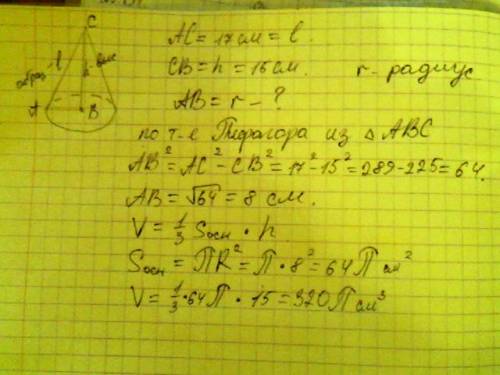 C
образ-l
h-выс
A
B
AC = 17 см = l.
CB = h = 15 см. r - радиус
AB = r - ?
по т-е Пифагора из △ ABC
AB² = AC² - CB² = 17² - 15² = 289 - 225 = 64.
AB = √64 = 8 см.
V = 1/3 Sосн · h
Sосн = ПR² = П · 8² = 64П см²
V = 1/3 · 64П · 15 = 320П см³